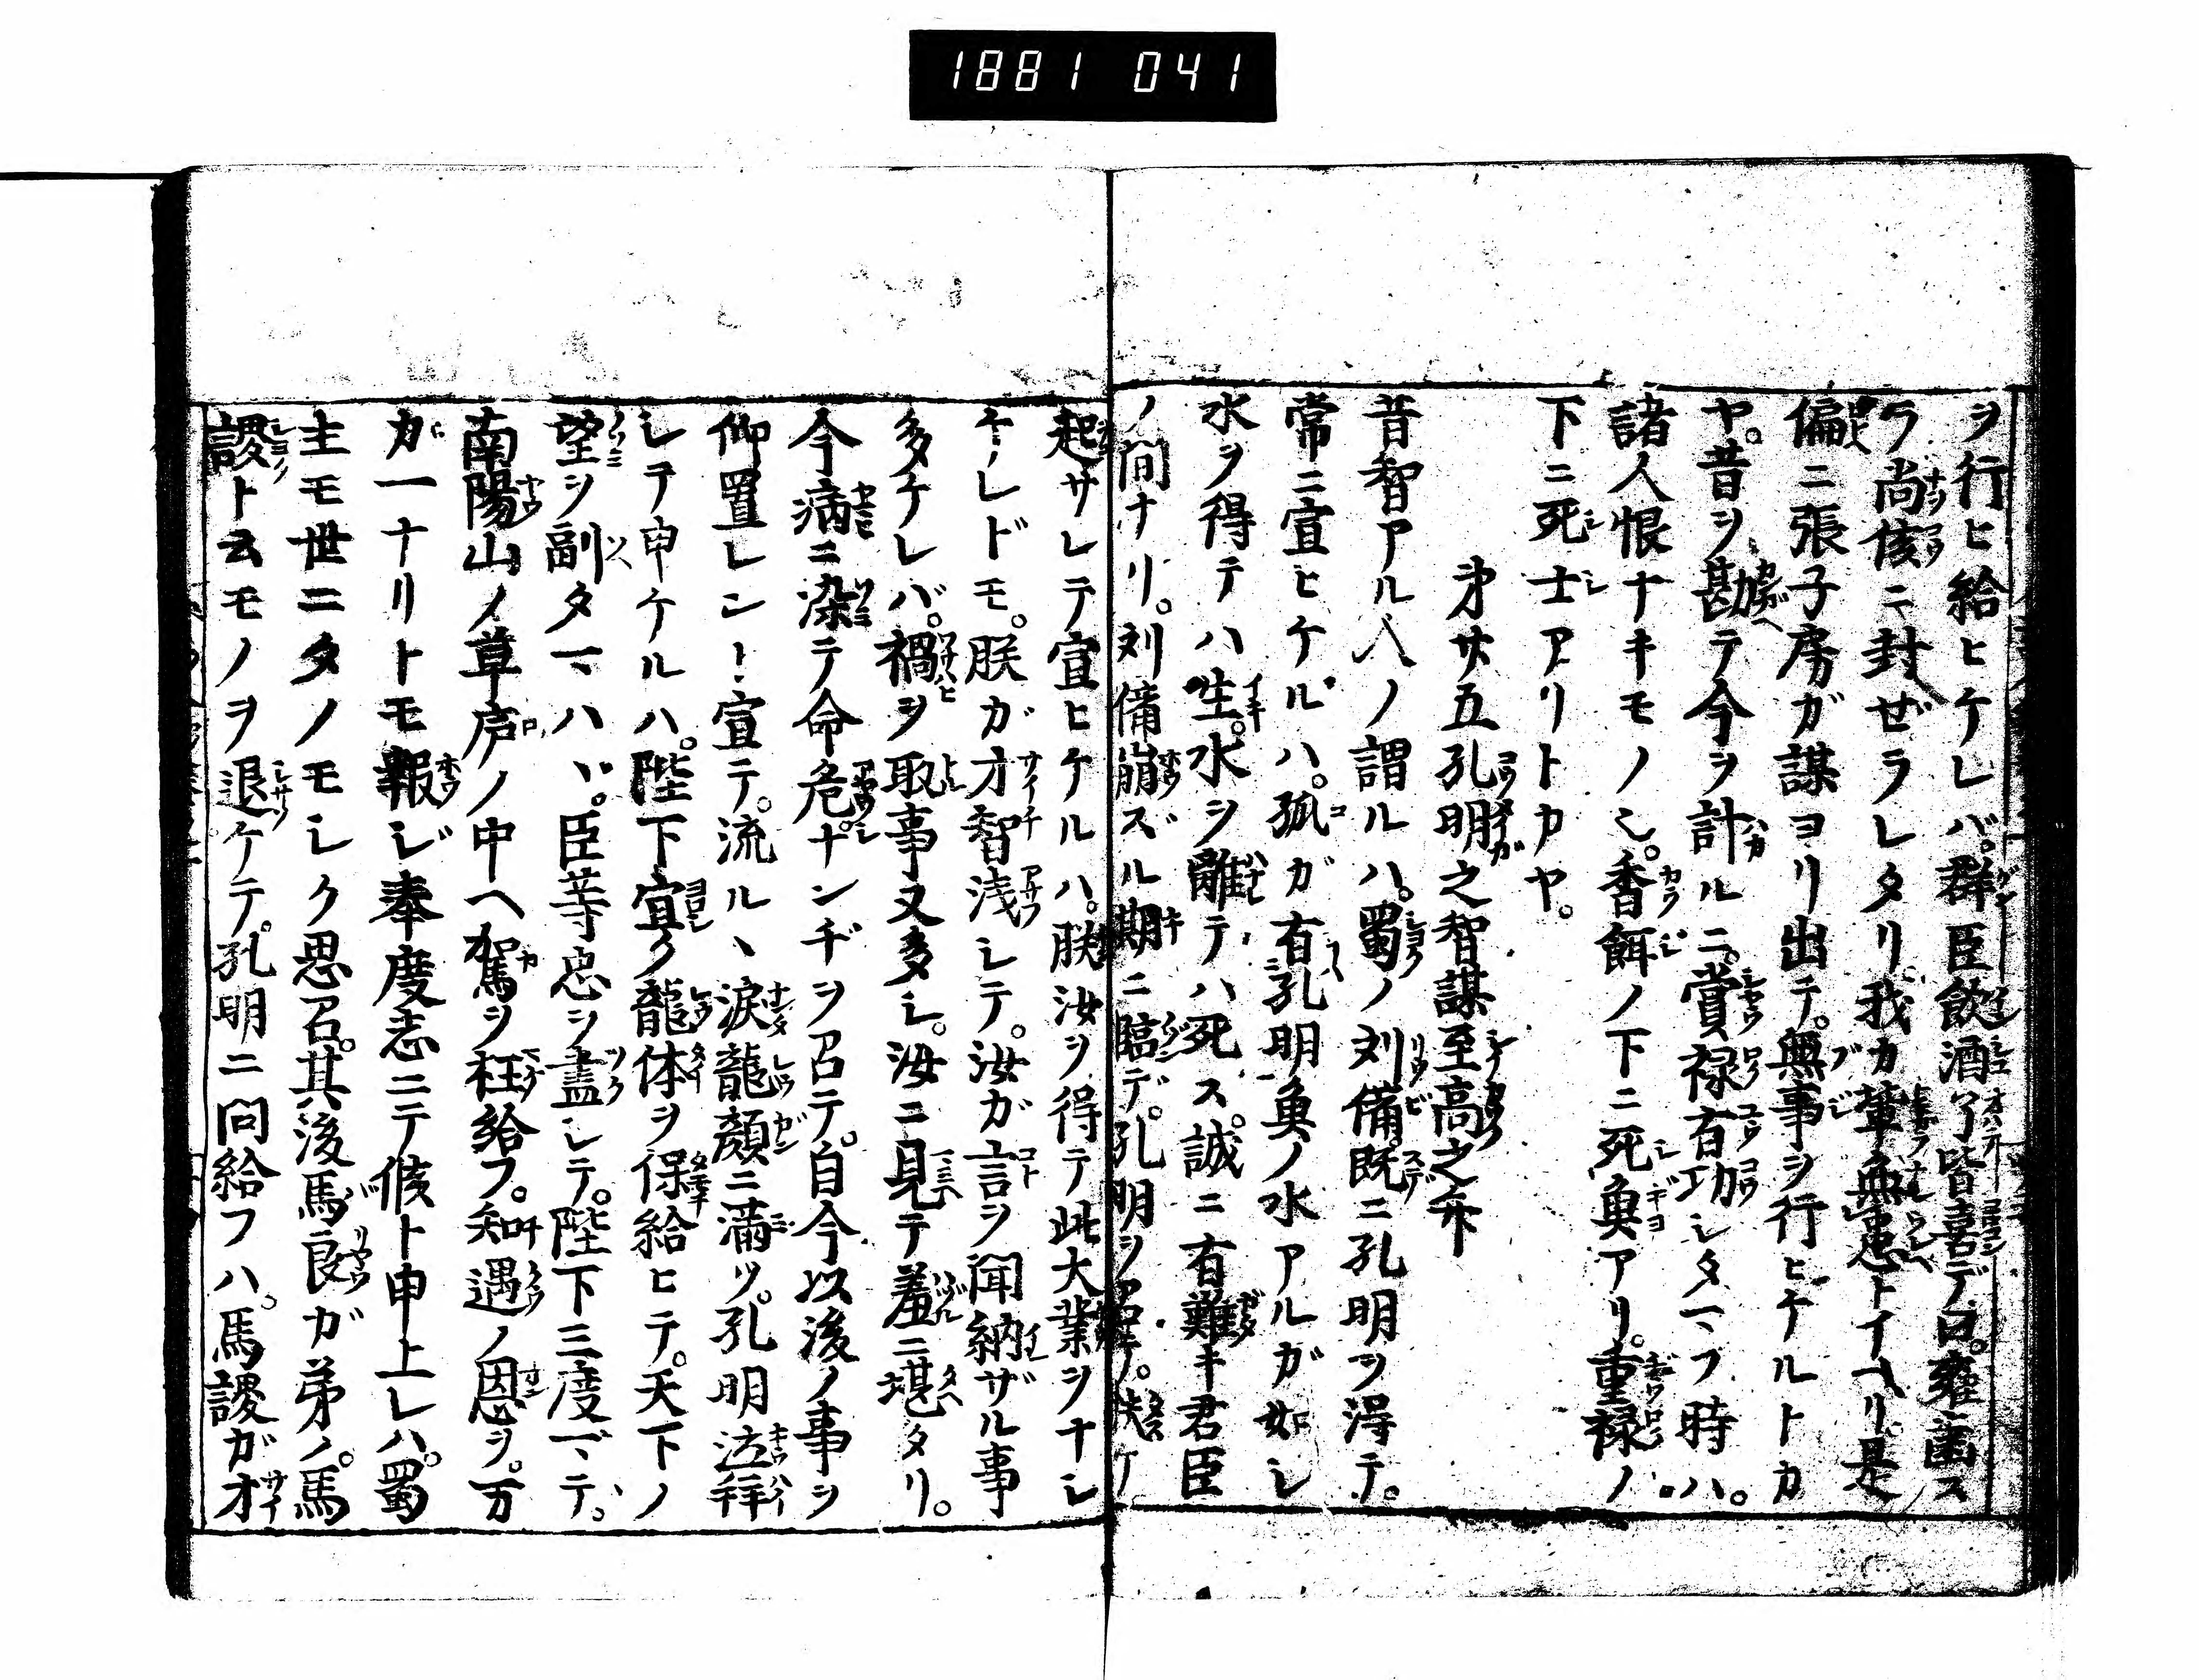 1881 041
ヲ行ヒ給ヒケレバ。群臣飲酒了皆喜デ曰。雍歯ス
ラ尚侯ニ封ゼラレタリ。我カ輩無患トイヘリ。是
偏ニ張子房ガ謀ヨリ出テ。無事ヲ行ヒケルトカ
ヤ。昔ヲ勘テ今ヲ計ルニ。賞禄有功シタマフ時ハ。
諸人恨ナキモノシ。香餌ノ下ニ死魚アリ。重禄ノ
下ニ死士アリトカヤ。
㐧廿五孔明之智謀至高之弁
昔智アル人ノ謂ルハ。蜀ノ刘備。既ニ孔明ヲ得テ。
常ニ宣ヒケルハ。孤ガ有孔明魚ノ水アルガ如シ
水ヲ得テハ生。水ヲ離テハ死ス。誠ニ有難キ君臣
ノ間ナリ。刘備崩ズル期ニ臨デ。孔明ヲ召テ。扶ケ
起サレテ宣ヒケルハ。朕汝ヲ得テ此大業ヲナシ
ケレドモ。朕ガ才智浅シテ。汝ガ言ヲ聞納ザル事
多ケレバ。禍ヲ取事又多シ。汝ニ見テ羞ニ堪タリ。
今病ニ染テ命危。ナンヂヲ召テ。自今以後ノ事ヲ
仰置レントヿ宣テ。流ル丶涙龍顔ニ満ツ。孔明泣拝
シテ申ケルハ。陛下宜ク龍体ヲ保給ヒテ。天下ノ
望ヲ副タマハヾ。臣等忠ヲ盡シテ。陛下三度マデ。
南陽山ノ草庐ノ中ヘ駕ヲ枉給フ。知遇ノ恩ヲ。万
ガ一ナリトモ報ジ奉度志ニテ候ト申上レハ。蜀
主モ世ニタノモシク思召。其後馬良ガ弟ノ。馬
謖ト云モノヲ退ケテ。孔明ニ問給フハ。馬謖ガ才